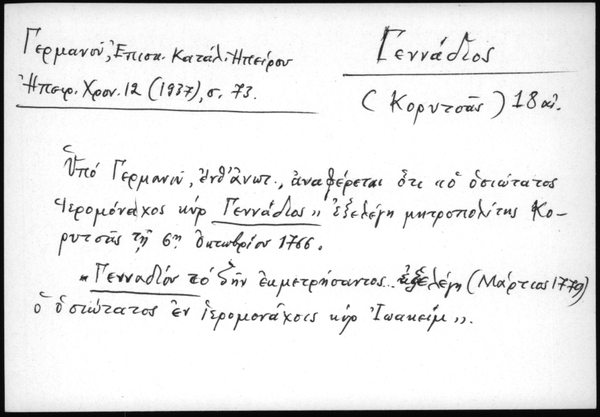 Γερμανοῦ, Ἐπισκ. Κατάλ. Ἠπείρου
Ἠπειρ. Χρον. 12 (1937), σ. 73.
Γεννάδιος
(Κορυτσᾶς) 18 αἰ.
Ὑπό Γερμανοῦ, ἔνθ' ἀνωτ., ἀναφέρεται ὅτι «ὁ ὁσιώτατος
ἱερομόναχος κύρ Γεννάδιος» ἐξελέγη μητροπολίτης Κο-
ρυτσᾶς τῇ 6ῃ Ὀκτωβρίου 1766.
«Γενναδίου τό ζῆν ἐκμετρήσαντος.. ἐξελέγη (Μάρτιος 1779)
ὁ ὁσιώτατος ἐν ἱερομονάχοις κύρ Ἰωακείμ».